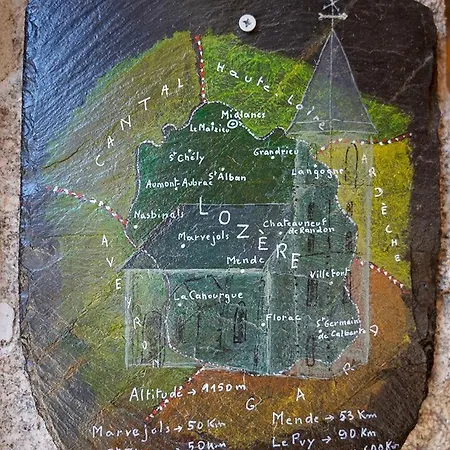 CANTAL
Haute Loire
Mialanes
Le Malzieu
St Chély
Grandrieu
Langogne
Aumont-Aubrac
St Alban
ARDÈCHE
Nasbinals
LOZÈRE
Chateauneuf
de Randon
Marvejols
AVEYRON
Mende
Villefort
La Canourgue
Florac
St Germain
de Calberte
GARD
Altitude → 1150m
Marvejols → 50 Km
Mende → 53 Km
50 Km
Le Puy → 90 Km